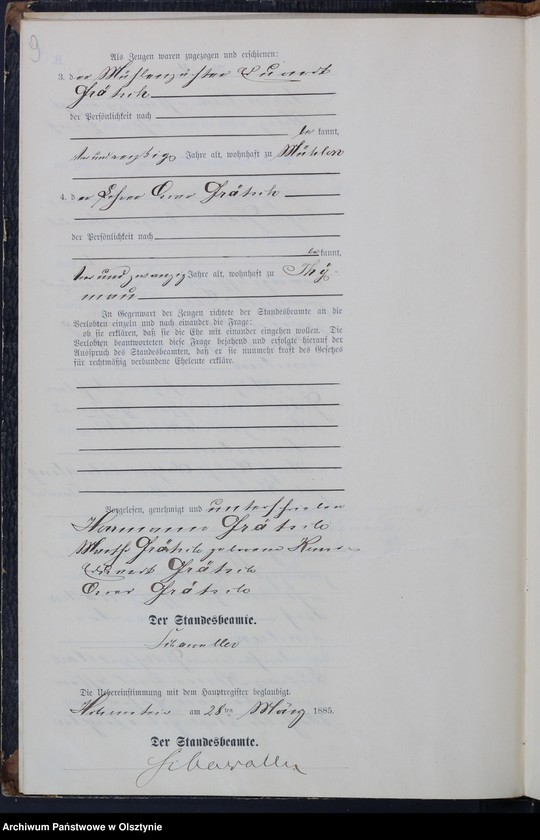 9
Als Zeugen waren zugezogen und erschienen:
3. der Mühlenpächter Eduard
Grätsch
der Persönlichkeit nach
be kannt,
Jahre alt, wohnhaft zu Mühlen
4. der Lehrer Grätsch
der Persönlichkeit nach
be kannt,
und zwanzig Jahre alt, wohnhaft zu Thy-
mau
In Gegenwart der Zeugen richtete der Standesbeamte an die
Verlobten einzeln und nach einander die Frage:
ob sie erklären, daß sie die Ehe mit einander eingehen wollen. Die
Verlobten beantworteten diese Frage bejahend und erfolgte hierauf der
Ausspruch des Standesbeamten, daß er sie nunmehr kraft des Gesetzes
für rechtmäßig verbundene Eheleute erkläre.
Vorgelesen, genehmigt und unterschrieben
Hermann Grätsch
Grätsch geborene
Eduard Grätsch
Grätsch
Der Standesbeamte.
Die Uebereinstimmung mit dem Hauptregister beglaubigt.
Hohenstein am 28ten März 1885.
Der Standesbeamte.
Archiwum Państwowe w Olsztynie